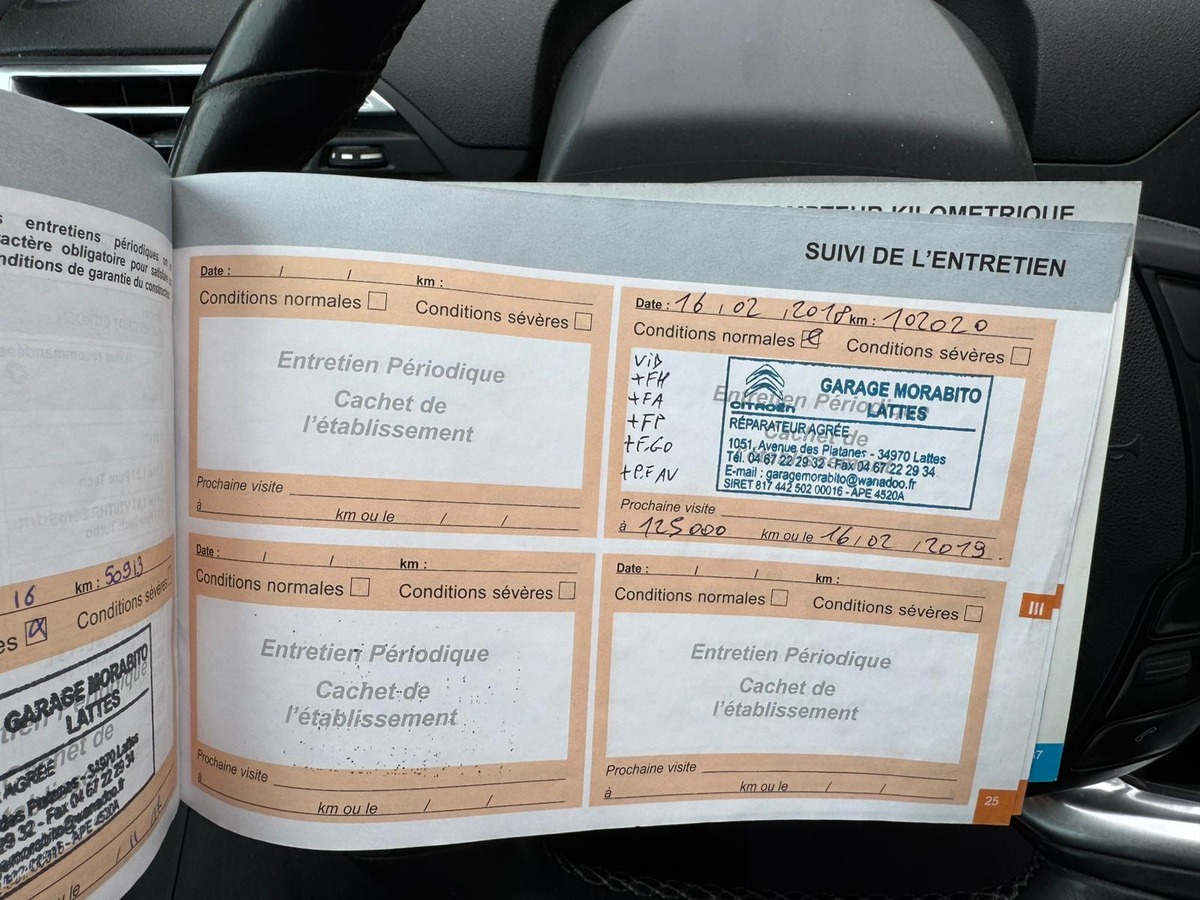 entretiens périodiques
ractère obligatoire pour
nditions de garantie du
16 km : 50913
es Conditions sévères
GARAGE MORABITO
LATTES
AGRÉÉ
34970 Lattes
29 32 - Fax 04 67 22 29 34
APE 4520A
KILOMETRIQUE
SUIVI DE L'ENTRETIEN
Date : / / km :
Conditions normales Conditions sévères
Entretien Périodique
Cachet de
l'établissement
Prochaine visite
à km ou le / /
Date : 16 / 02 / 2018 km : 102020
Conditions normales Conditions sévères
ViD
+FH
+FA
+FP
+F.GO
+P.F AV
Entretien Périodique
Cachet de
CITROËN
GARAGE MORABITO
LATTES
RÉPARATEUR AGRÉE
1051, Avenue des Platanes - 34970 Lattes
Tél. 04 67 22 29 32 - Fax 04 67 22 29 34
E-mail : garagemorabito@wanadoo.fr
SIRET 817 442 502 00016 - APE 4520A
Prochaine visite
à 125000 km ou le 16 / 02 / 2019
Date : / / km :
Conditions normales Conditions sévères
Entretien Périodique
Cachet de
l'établissement
Prochaine visite
à km ou le / /
Date : / / km :
Conditions normales Conditions sévères
Entretien Périodique
Cachet de
l'établissement
Prochaine visite
à km ou le / /
III
25